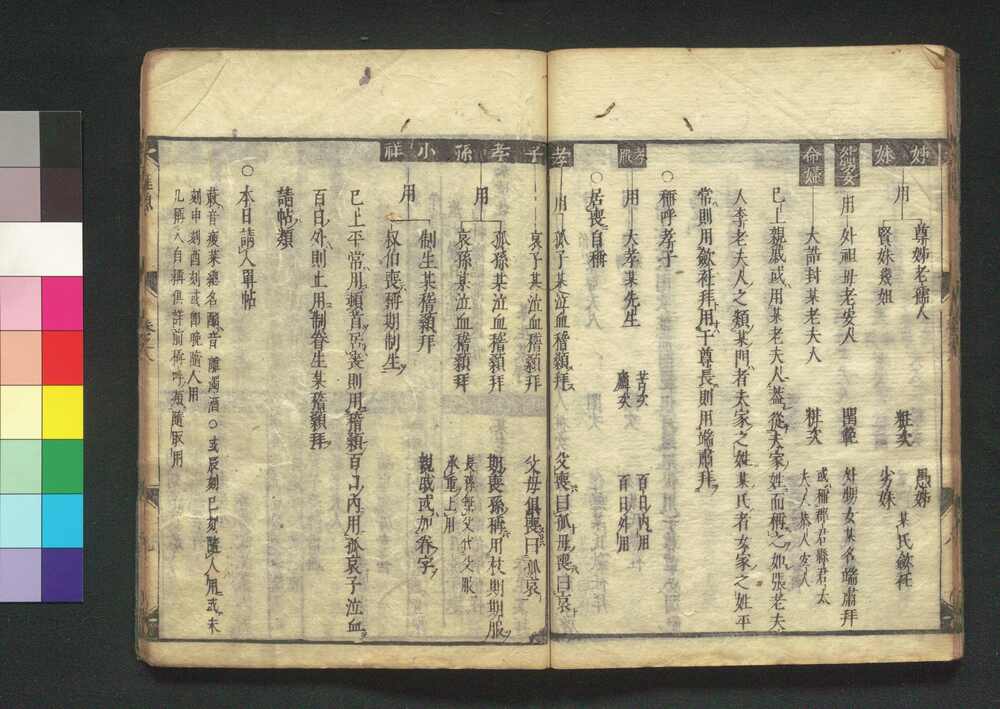 姉 妹
用
尊姉老孺人 粧次 愚姉
賢妹幾姐 劣妹
某氏斂衽
外甥女
用 外祖母老安人 閨範 外甥女某名端肅拜
命婦
大誥封某老夫人 粧次
或稱郡君縣君太
夫人恭人安人
已上親戚或用某老夫人蓋從夫家姓而稱之如張老夫
人李老夫人之類某門者夫家之姓某氏者女家之姓平
常則用斂衽拜用于尊長則用端肅拜
○稱呼孝子
孝服
用 大孝某先生 苫次 百日內用
廬次 百日外用
○居喪自稱
孝子
用 孤子某泣血稽顙拜 父喪曰孤母喪曰哀
哀子某泣血稽顙拜 父母俱喪曰孤哀
孝孫
用
孤孫某泣血稽顙拜 期喪孫稱用杖期期服
哀孫某泣血稽顙拜
長孫無父代父服
承重上用
小祥
用
制生某稽顙拜 親戚或加眷字
叔伯喪稱期制生
已上平常用頓首居喪則用稽顙百日內用孤哀子泣血
百日外則上用制眷生某稽顙拜
請帖類
○本日請人單帖
蔌音瘦菜總名醨音離濁酒○或辰刻巳刻隨人用或未
刻申刻酉刻或即晚隨人用
凡稱人自稱俱詳前稱呼類隨取用